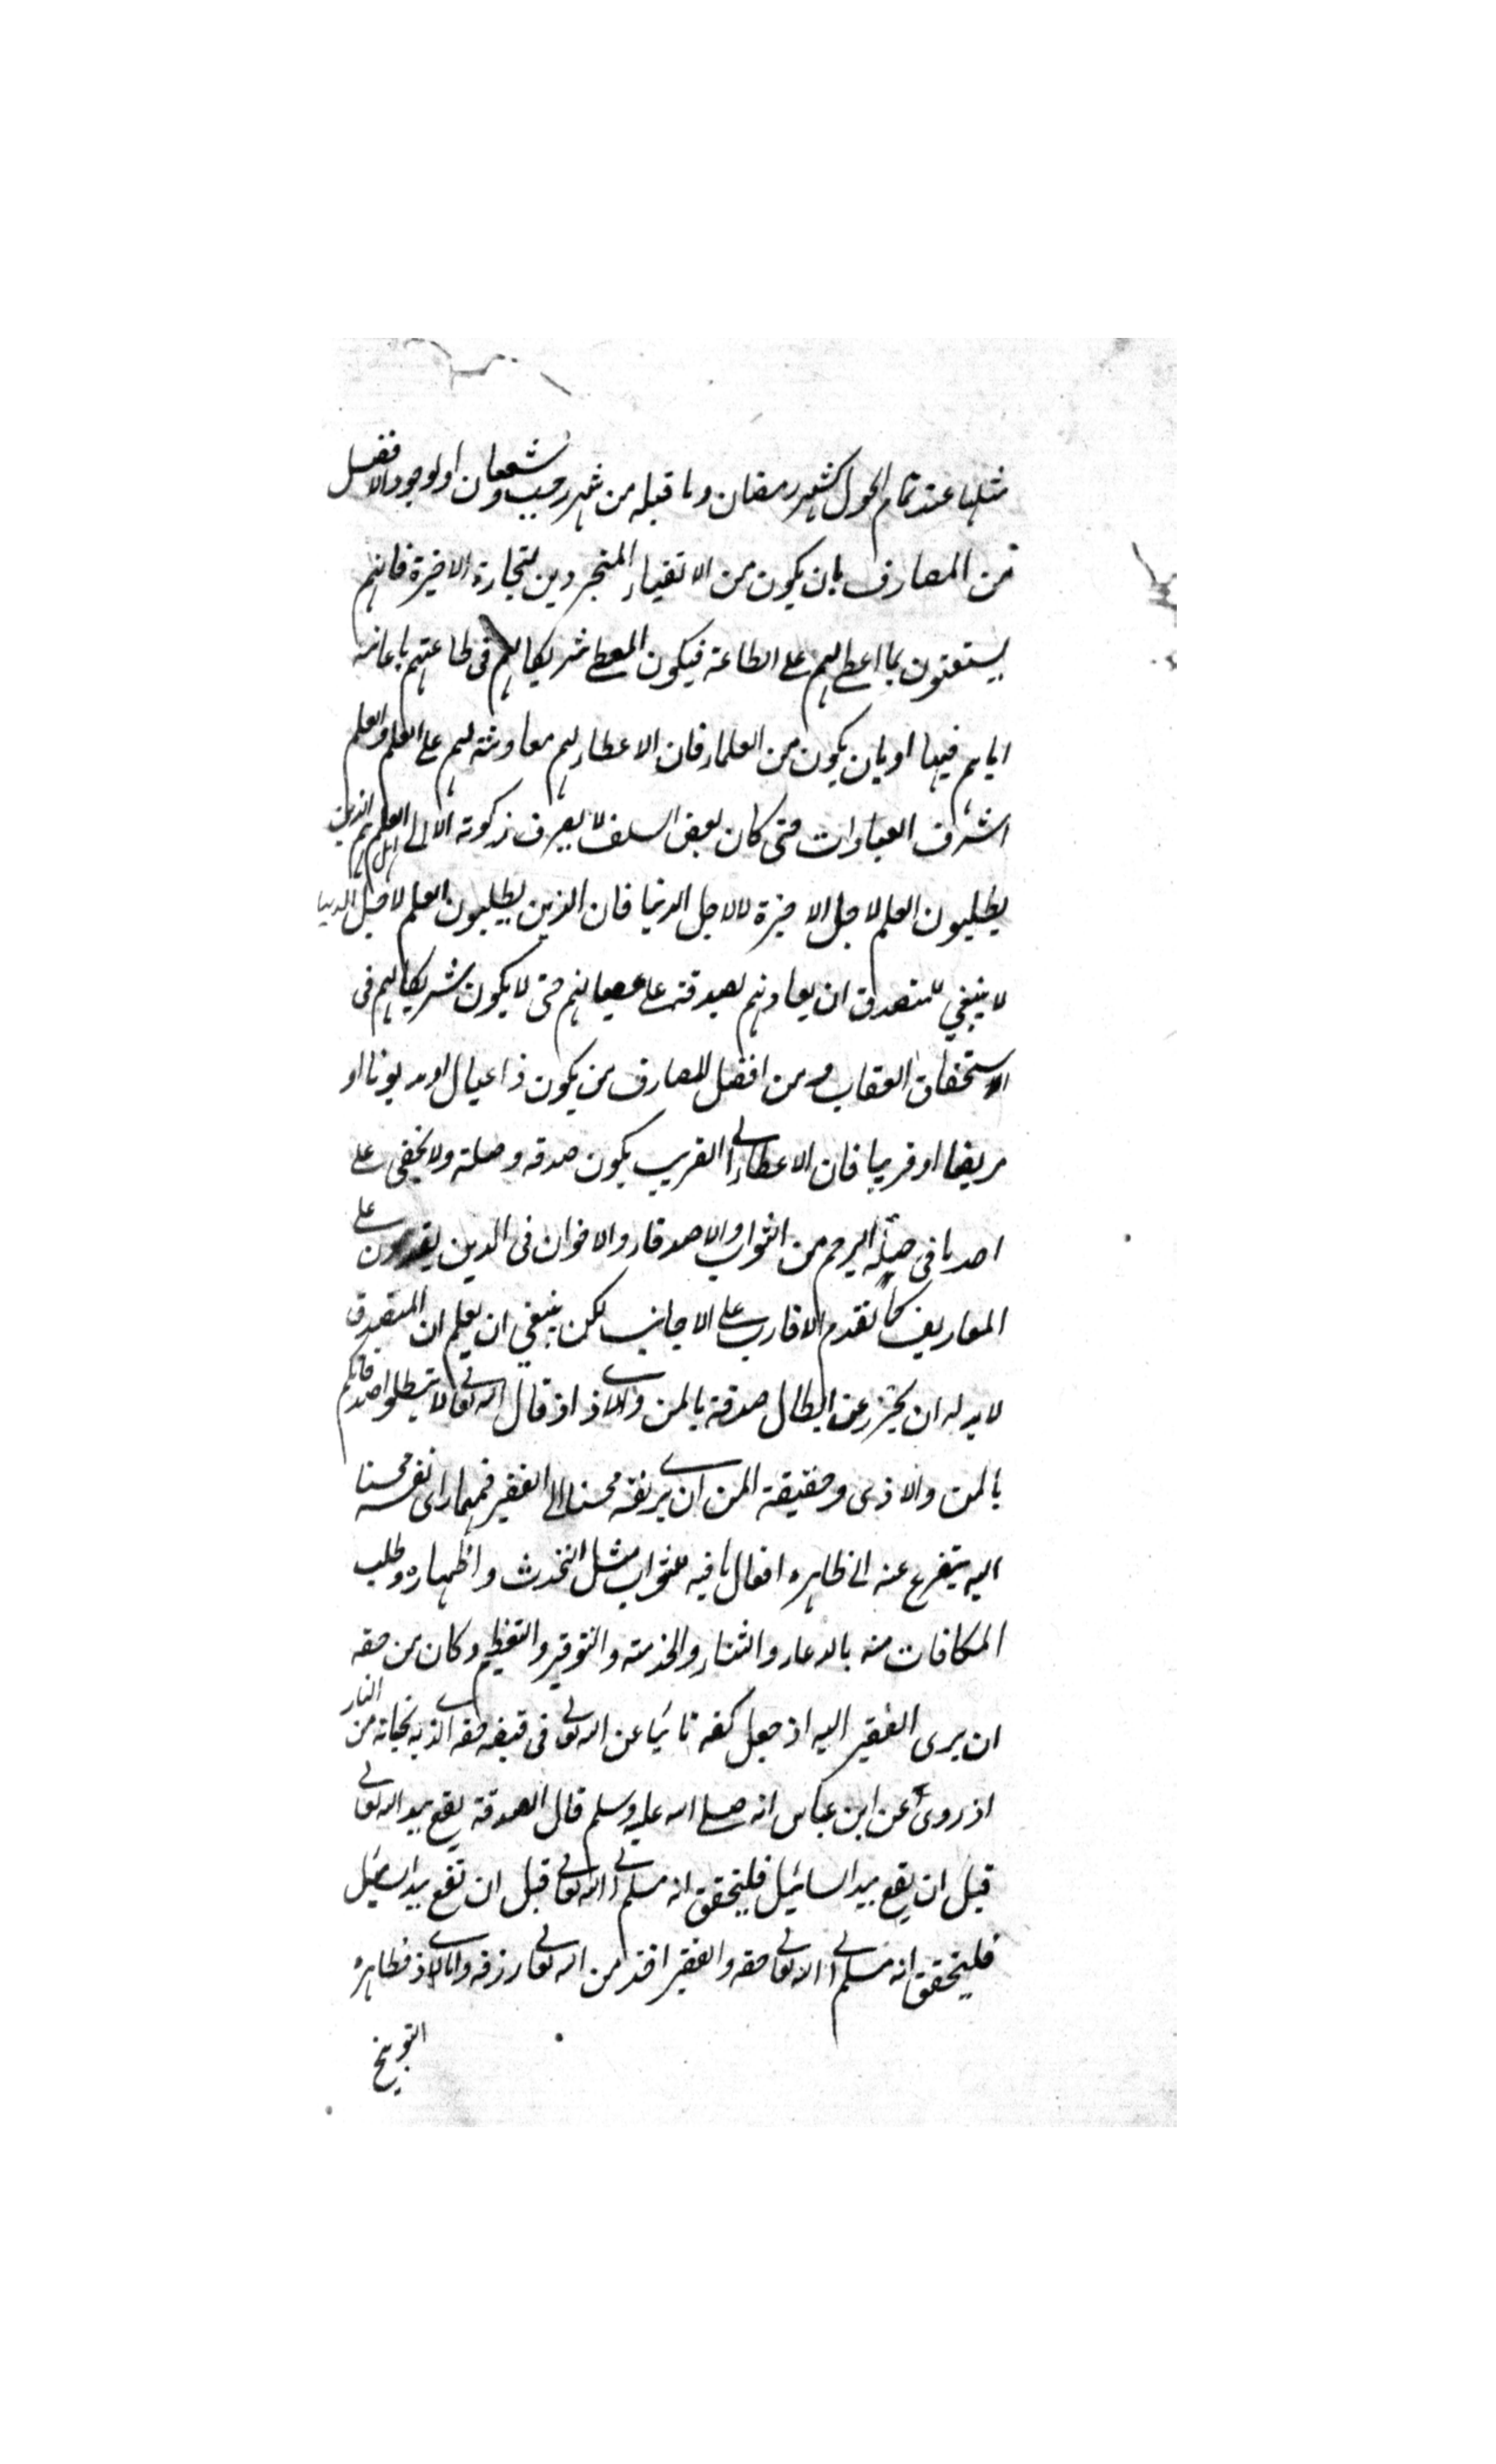 مثلها عند تمام الحول كشهر رمضان وما قبله من شهر رجب وشعبان او لوجود الافضل
من المصارف بان يكون من الاتقياء المتجردين لتجارة الاخرة فانهم
يستعينون بما اعطى لهم على الطاعة فيكون المعطى شريكا لهم فى طاعتهم باعانته
اياهم فيها او بان يكون من العلماء فان الاعطاء لهم معاونته لهم على العلم والعلم
اشرف العبادات حتى كان بعض السلف لا يصرف زكوته الا الى اهل العلم هم الذين
يطلبون العلم لاجل الاخرة لا لاجل الدنيا فان الذين يطلبون العلم لاجل الدنيا
لا ينبغي للمتصدق ان يعاونهم بصدقته على عصيانهم حتى لا يكون شريكا لهم فى
استحقاق العقاب ومن افضل المصارف من يكون ذا عيال او مديونا او
مريضا او قريبا فان الاعطاء الى القريب يكون صدقه وصلة ولا يخفى على
احد ما فى صلة الرحم من الثواب والاصدقاء والاخوان فى الدين يقدمون على
المعاريف كما تقدم الاقارب على الاجانب لكن ينبغي ان يعلم ان المتصدق
لابد له ان يحترز عن ابطال صدقة بالمن والاذى اذ قال الله تعالى لا تبطلوا صدقاتكم
بالمن والاذى وحقيقة المن ان يرى نفسه محسنا الى الفقير فمهما راى نفسه محسنا
اليه يتفرع عنه الى ظاهره افعال نافيه للثواب مثل التحدث واظهاره وطلب
المكافات منه بالدعاء والثناء والخدمة والتوقير والتعظيم وكان من حقه
ان يرى الفقير اليه اذ جعل كفه نائبا عن الله تعالى فى قبضه حقه الذى به نجاته من النار
اذ روى عن ابن عباس انه صلى الله عليه وسلم قال الصدقة يقع بيد الله تعالى
قبل ان يقع بيد السائل فليتحقق انه مسلم الى الله تعالى قبل ان تقع بيد السائل
فليتحقق انه مسلم الى الله تعالى حقه والفقير اخذ من الله تعالى رزقه واما الاذى فظاهره
التوبيخ